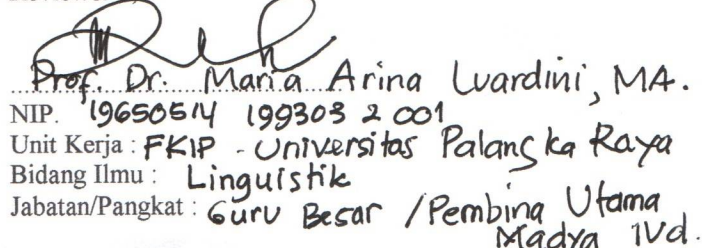 Prof. Dr. Maria Arina Luardini, MA.
NIP. 19650514 199303 2 001
Unit Kerja : FKIP - Universitas Palangka Raya
Bidang Ilmu : Linguistik
Jabatan/Pangkat : Guru Besar / Pembina Utama
Madya IVd.